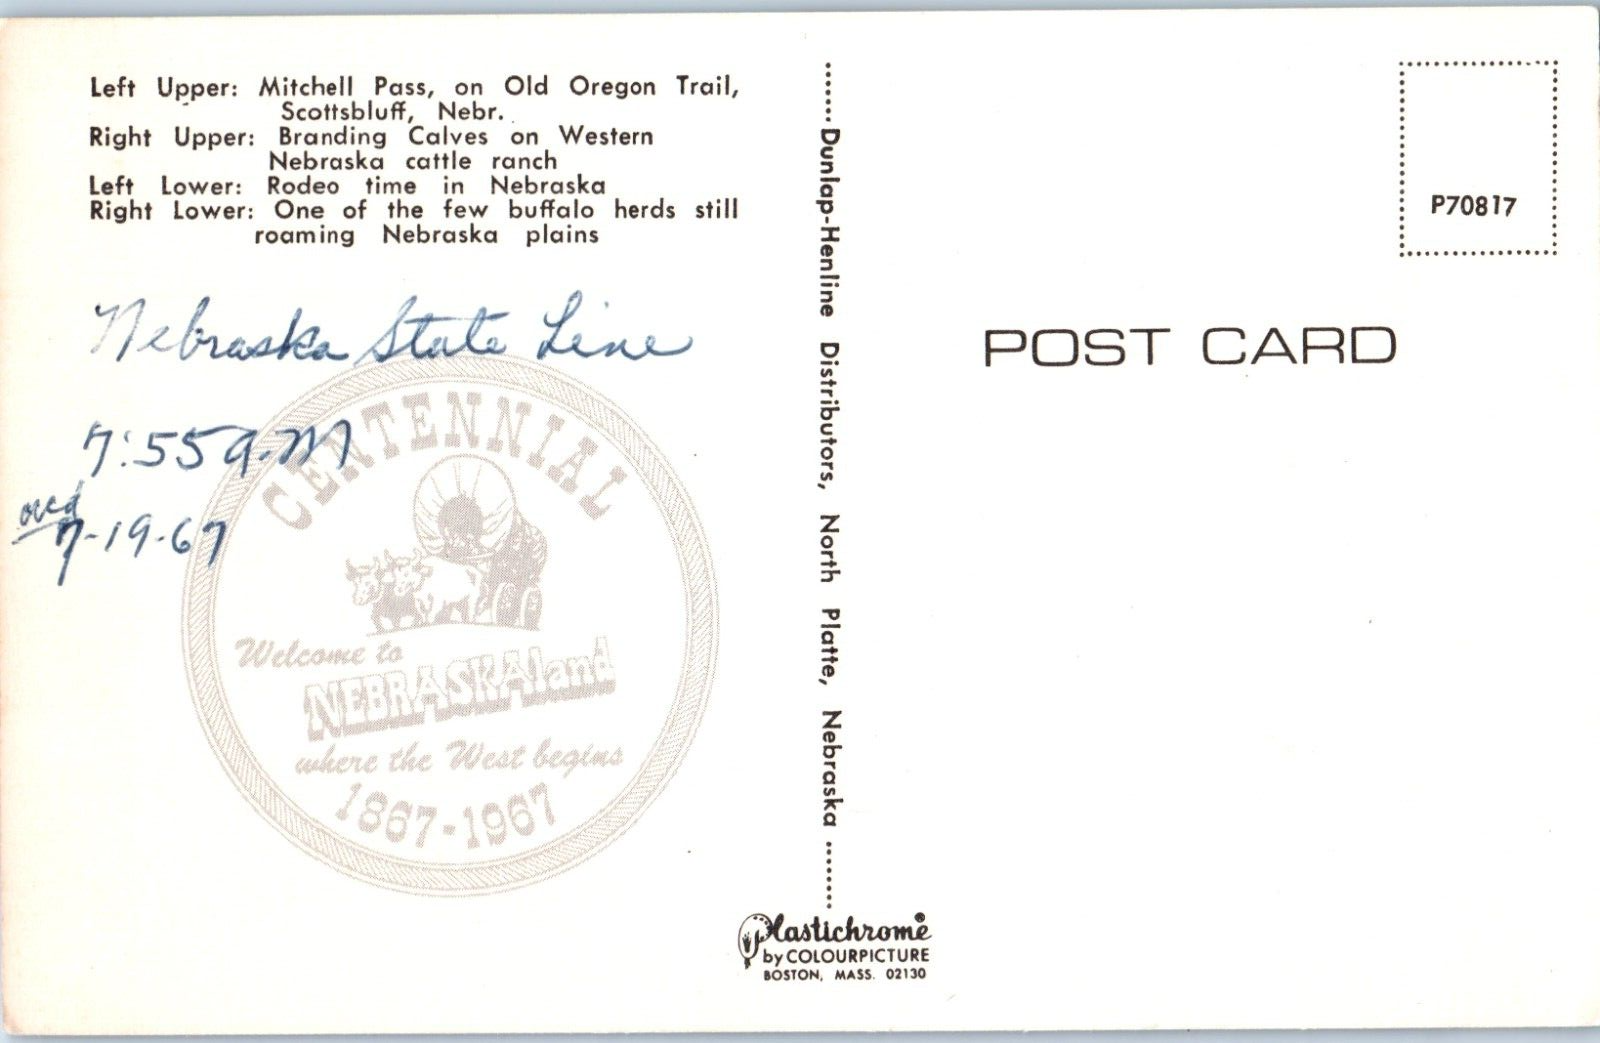 Left Upper: Mitchell Pass, on Old Oregon Trail,
Scottsbluff, Nebr.
Right Upper: Branding Calves on Western
Nebraska cattle ranch
Left Lower: Rodeo time in Nebraska
Right Lower: One of the few buffalo herds still
roaming Nebraska plains
Nebraska State Line
7:55 a.m
7-19-67
CENTENNIAL
Welcome to
NEBRASKAland
where the West begins
1867-1967
Dunlap-Henline Distributors, North Platte, Nebraska
Plastichrome®
by COLOURPICTURE
BOSTON, MASS. 02130
P70817
POST CARD